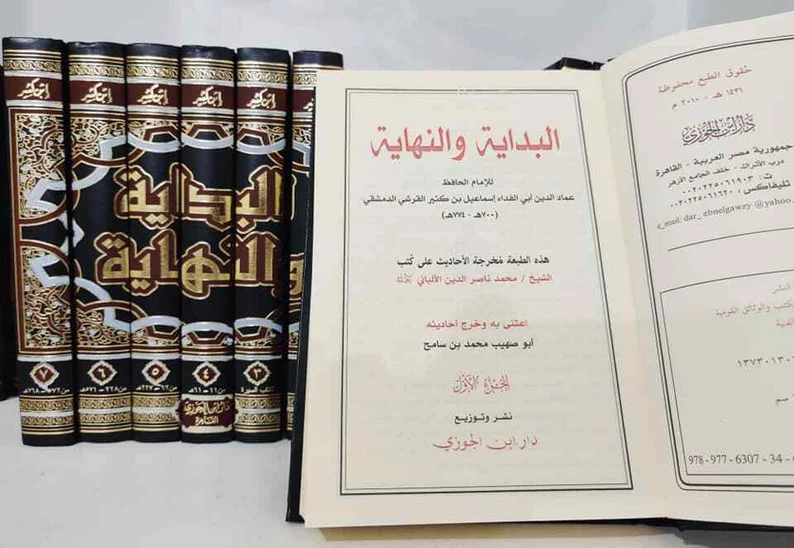 البداية والنهاية
للإمام الحافظ
عماد الدين أبي الفداء إسماعيل بن كثير القرشي الدمشقي
(٧٠٠هـ - ٧٧٤هـ)
هذه الطبعة مُخرجة الأحاديث على كتب
الشيخ / محمد ناصر الدين الألباني
اعتنى به وخرج أحاديثه
أبو صهيب محمد بن سامح
الجزء الأول
نشر وتوزيع
دار ابن الجوزي
حقوق الطبع محفوظة
١٤٣١ هـ - ٢٠١٠ م
دار ابن الجوزي
جمهورية مصر العربية - القاهرة
درب الأتراك - خلف الجامع الأزهر
ت: ٠٠٢٠٢٢٥٠٦١٩٠٣
تليفاكس: ٠٠٢٠٢٢٥٠٦١٦٢٠
e_mail: dar_ebnelgawzy @yahoo.
النشر
الكتب والوثائق القومية
الفنية
سم
978 - 977 - 6307 - 34 -
ابن كثير
ابن كثير
ابن كثير
ابن كثير
ابن كثير
ابن كثير
البداية
والنهاية
٣
٤
٥
٦
٧
دار ابن الجوزي
القاهرة